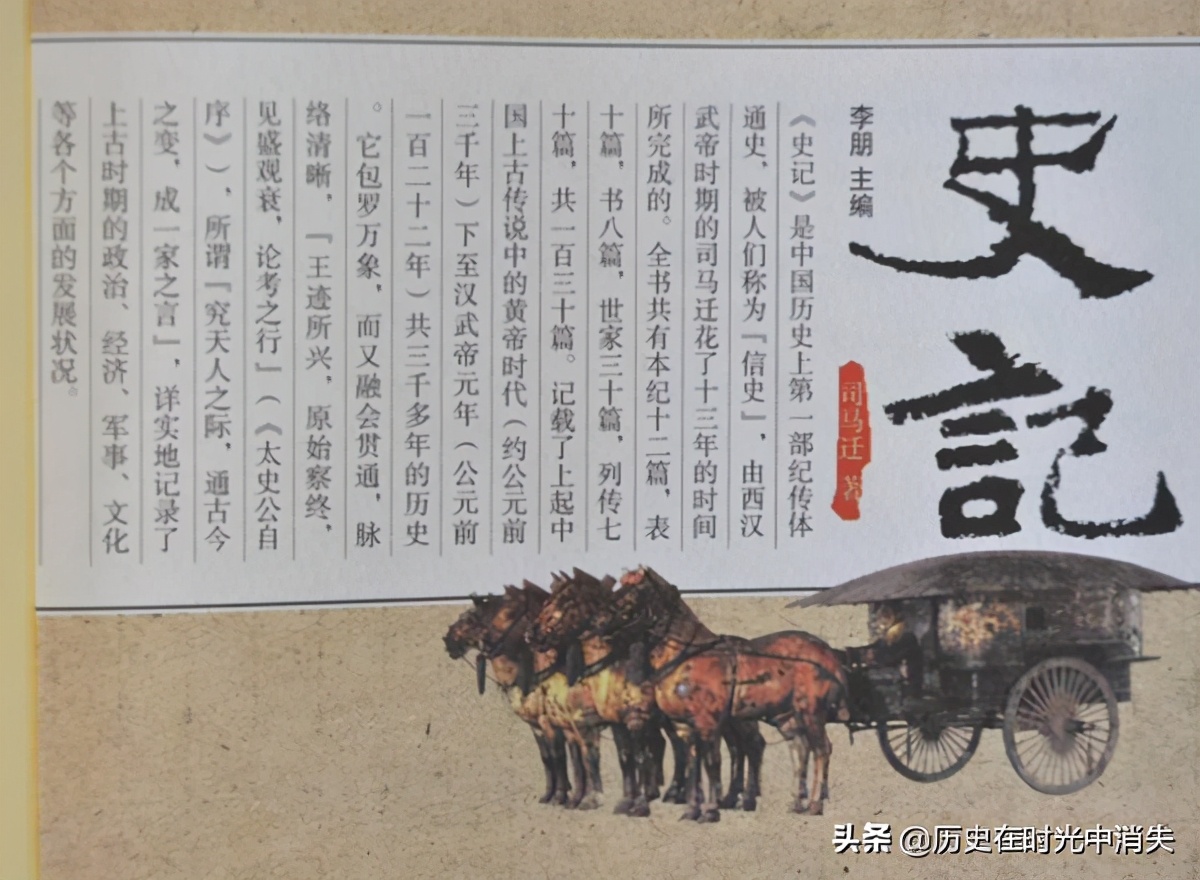 史記
司马迁 著
李朋 主编
《史记》是中国历史上第一部纪传体
通史，被人们称为『信史』，由西汉
武帝时期的司马迁花了十三年的时间
所完成的。全书共有本纪十二篇，表
十篇，书八篇，世家三十篇，列传七
十篇，共一百三十篇。记载了上起中
国上古传说中的黄帝时代（约公元前
三千年）下至汉武帝元年（公元前
一百二十二年）共三千多年的历史
。它包罗万象，而又融会贯通，脉
络清晰，『王迹所兴，原始察终，
见盛观衰，论考之行』（《太史公自
序》），所谓『究天人之际，通古今
之变，成一家之言』，详实地记录了
上古时期的政治、经济、军事、文化
等各个方面的发展状况。
头条 @历史在时光中消失